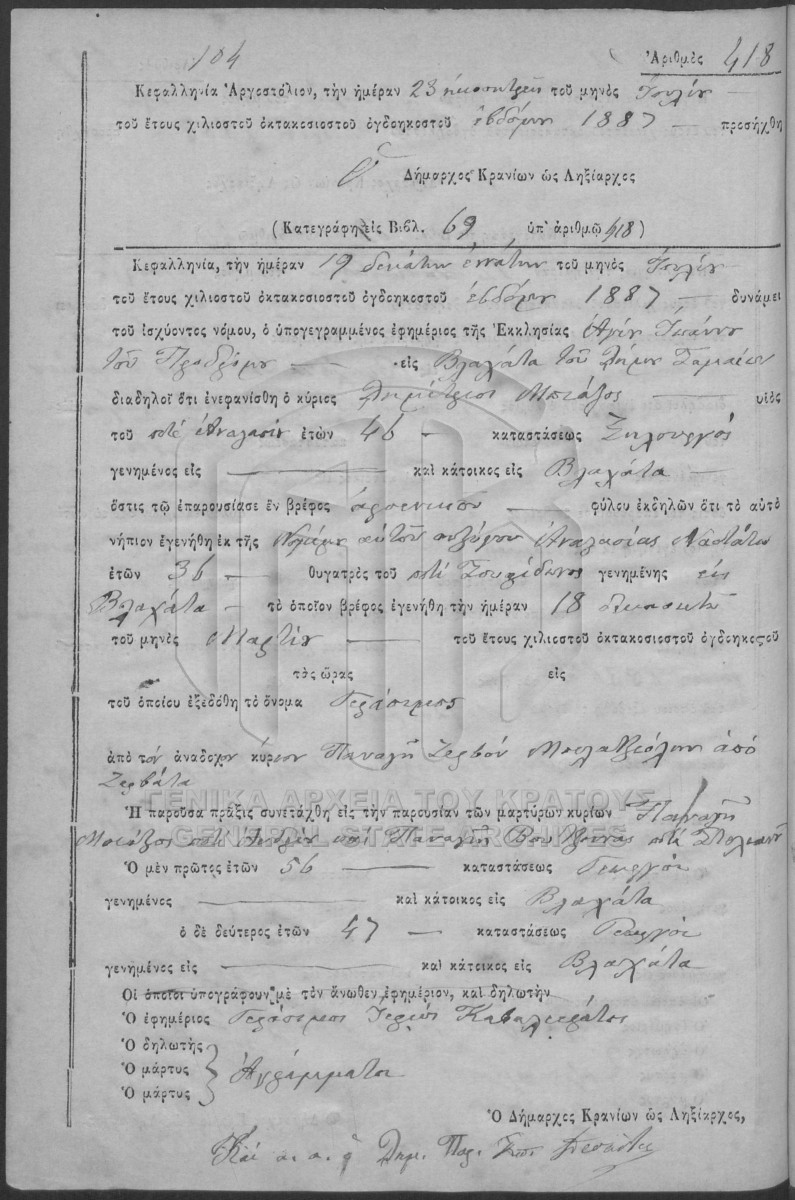 104 Ἀριθμὸς 418
Κεφαλληνία Ἀργοστόλιον, τὴν ἡμέραν 23 τοῦ μηνὸς Ἰουλίου
τοῦ ἔτους χιλιοστοῦ ὀκτακοσιοστοῦ ὀγδοηκοστοῦ ἑβδόμου 1887 προσήχθη
Ὁ Δήμαρχος Κρανίων ὡς Ληξίαρχος
(Κατεγράφη εἰς Βιβλ. 69 ὑπ' ἀριθμῷ 418)
Κεφαλληνία, τὴν ἡμέραν 19 δεκάτην ἐννάτην τοῦ μηνὸς Ἰουλίου
τοῦ ἔτους χιλιοστοῦ ὀκτακοσιοστοῦ ὀγδοηκοστοῦ ἑβδόμου 1887 δυνάμει
τοῦ ἰσχύοντος νόμου, ὁ ὑπογεγραμμένος ἐφημέριος τῆς Ἐκκλησίας Ἁγίου Ἰωάννου
τοῦ Προδρόμου εἰς Βλαχάτα τοῦ Δήμου Σαμαίων
διαδηλοῖ ὅτι ἐνεφανίσθη ὁ κύριος Δημήτριος Μπιάζος υἱὸς
τοῦ ποτὲ Ἀναστασίου ἐτῶν 46 καταστάσεως Ξυλουργός
γενημένος εἰς καὶ κάτοικος εἰς Βλαχάτα
ὅστις τῷ ἐπαρουσίασε ἓν βρέφος ἀρσενικοῦ φύλου ἐκδηλῶν ὅτι τὸ αὐτὸ
νήπιον ἐγενήθη ἐκ τῆς Νομίμου αὐτοῦ συζύγου Ἀναστασίας
ἐτῶν 36 θυγατρὸς τοῦ ποτὲ Σπυρίδωνος γενημένης εἰς
Βλαχάτα τὸ ὁποῖον βρέφος ἐγενήθη τὴν ἡμέραν 18 δεκαοκτώ
τοῦ μηνὸς Μαρτίου τοῦ ἔτους χιλιοστοῦ ὀκτακοσιοστοῦ ὀγδοηκοστοῦ
τὰς ὥρας εἰς
τοῦ ὁποίου ἐξεδόθη τὸ ὄνομα Γεράσιμος
ἀπὸ τὸν ἀνάδοχον κύριον Παναγῆ Ζερβὸν ἀπὸ
Ζερβάτα
ΓΕΝΙΚΑ ΑΡΧΕΙΑ ΤΟΥ ΚΡΑΤΟΥΣ
GENERAL STATE ARCHIVES
Ἡ παροῦσα πρᾶξις συνετάχθη εἰς τὴν παρουσίαν τῶν μαρτύρων κυρίων Παναγῆ
Μπιάζος ποτὲ καὶ Παναγῆς ποτὲ
Ὁ μὲν πρῶτος ἐτῶν 56 καταστάσεως Γεωργός
γενημένος καὶ κάτοικος εἰς Βλαχάτα
ὁ δὲ δεύτερος ἐτῶν 47 καταστάσεως Γεωργός
γενημένος εἰς καὶ κάτοικος εἰς Βλαχάτα
Οἱ ὁποῖοι ὑπογράφουν μὲ τὸν ἄνωθεν ἐφημέριον, καὶ δηλωτὴν
Ὁ ἐφημέριος Γεράσιμος Ἱερεὺς Καβαλιεράτος
Ὁ δηλωτὴς
Ὁ μάρτυς Ἀγράμματοι
Ὁ μάρτυς
Ὁ Δήμαρχος Κρανίων ὡς Ληξίαρχος,